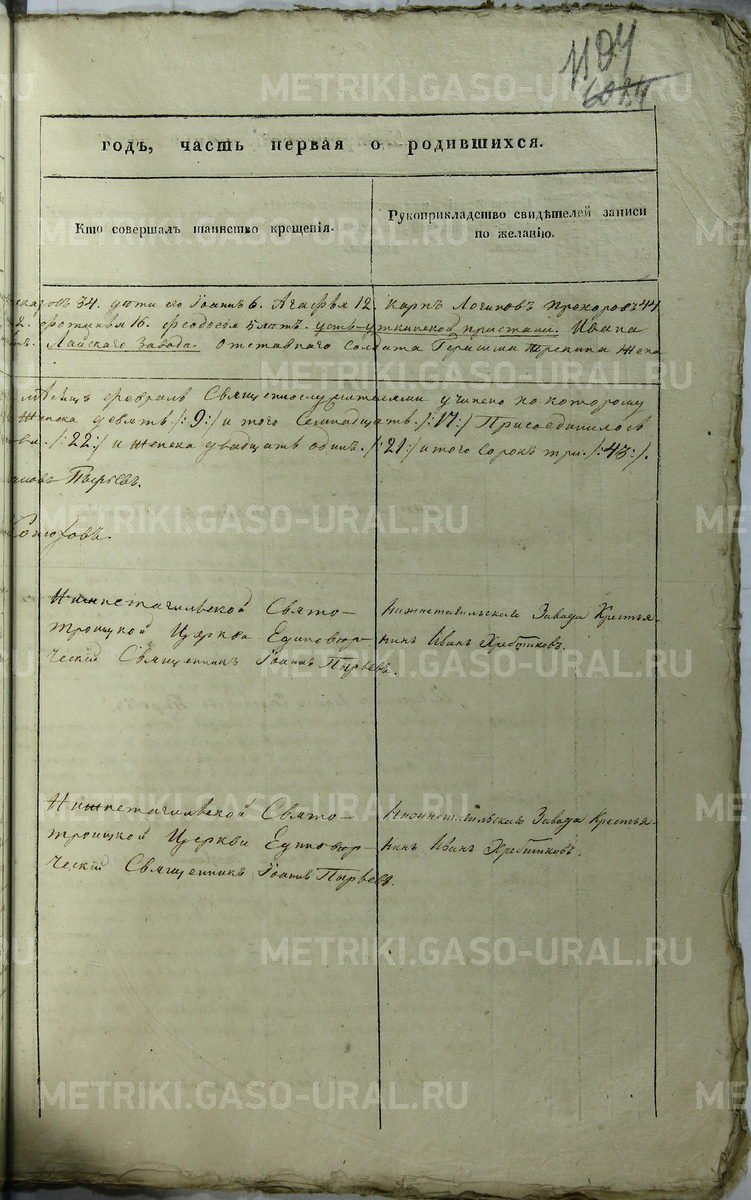 1194
годъ, часть первая о родившихся.
Кто совершалъ таинство крещенія.
Рукоприкладство свидѣтелей записи
по желанію.
34. дѣти его Іоаннъ 6. Агафья 12. Карпъ Логиновъ Прохоровъ 44
2. Фотинья 16. Феодосія 5 лѣтъ. Усть-уткинской пристани. Ивана
Лайскаго Завода. Отставнаго Солдата Герасима жена
мѣсяцъ февраль Священнослужителями учинено по которому
женска девять /:9:/ итого Семнадцать /:17:/ Присоединилось
/:22:/ и женска двадцать одинъ. /:21:/ итого сорокъ три. /:43:/.
Пырьевъ.
Нижнетагильской Свято-
троицкой Церкви Единовѣр-
ческій Священникъ Іоаннъ Пырьевъ.
Нижнетагильскаго Завода Крестья-
нинъ Иванъ Хребтиковъ.
Нижнетагильской Свято-
троицкой Церкви Единовѣр-
ческій Священникъ Іоаннъ Пырьевъ.
Нижнетагильскаго Завода Крестья-
нинъ Иванъ Хребтиковъ.
METRIKI.GASO-URAL.RU